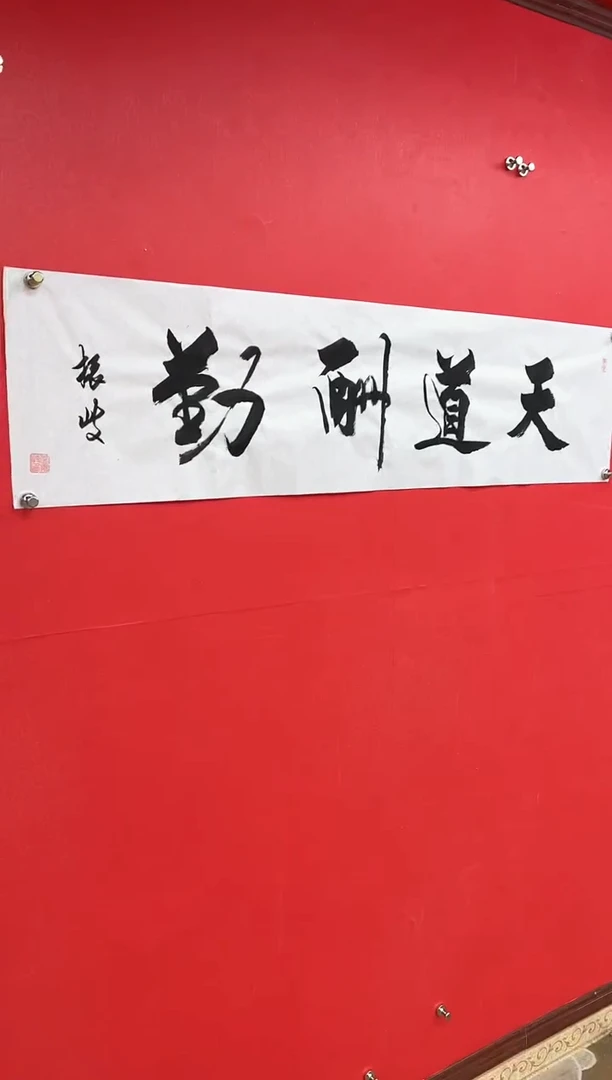 天道酬勤
振岐